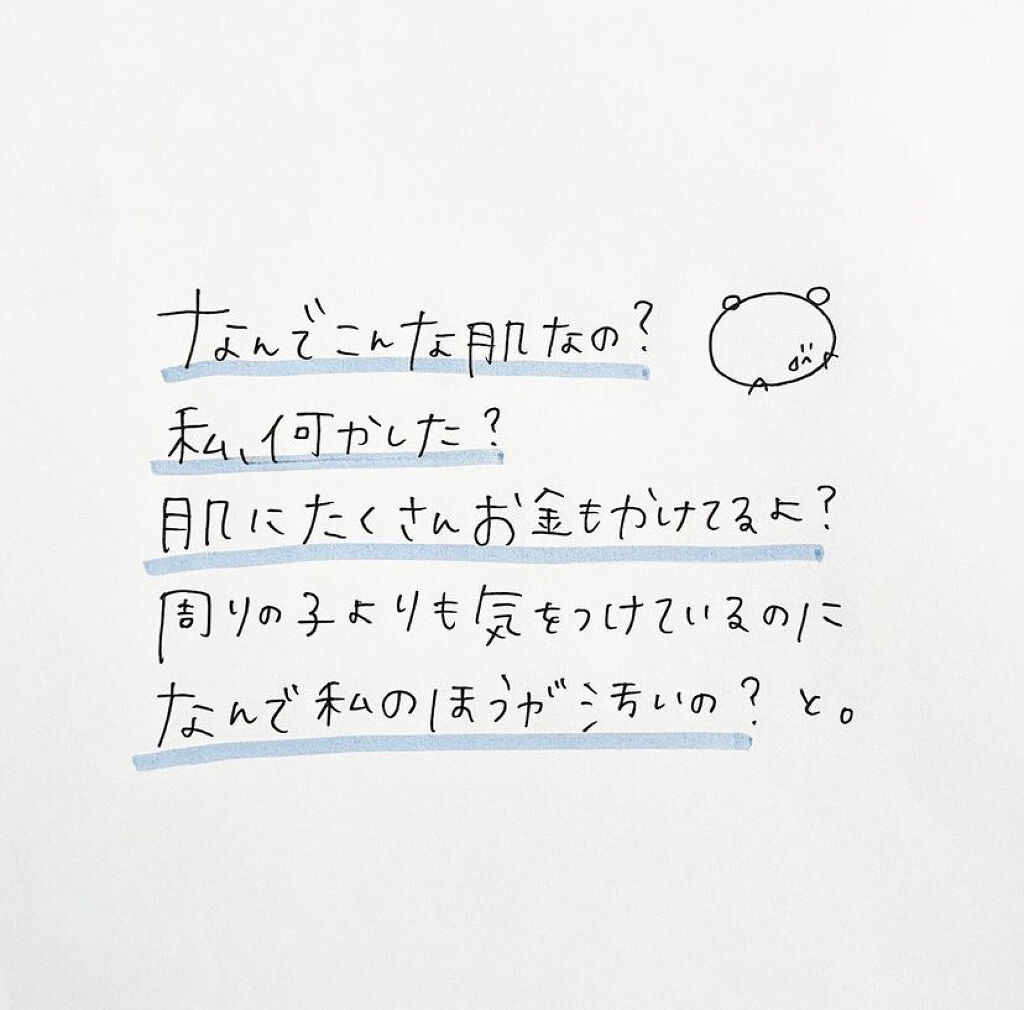 なんでこんな肌なの?
私、何かした?
肌にたくさんお金もかけてるよ?
周りの子よりも気をつけているのに
なんで私のほうが汚いの?と。